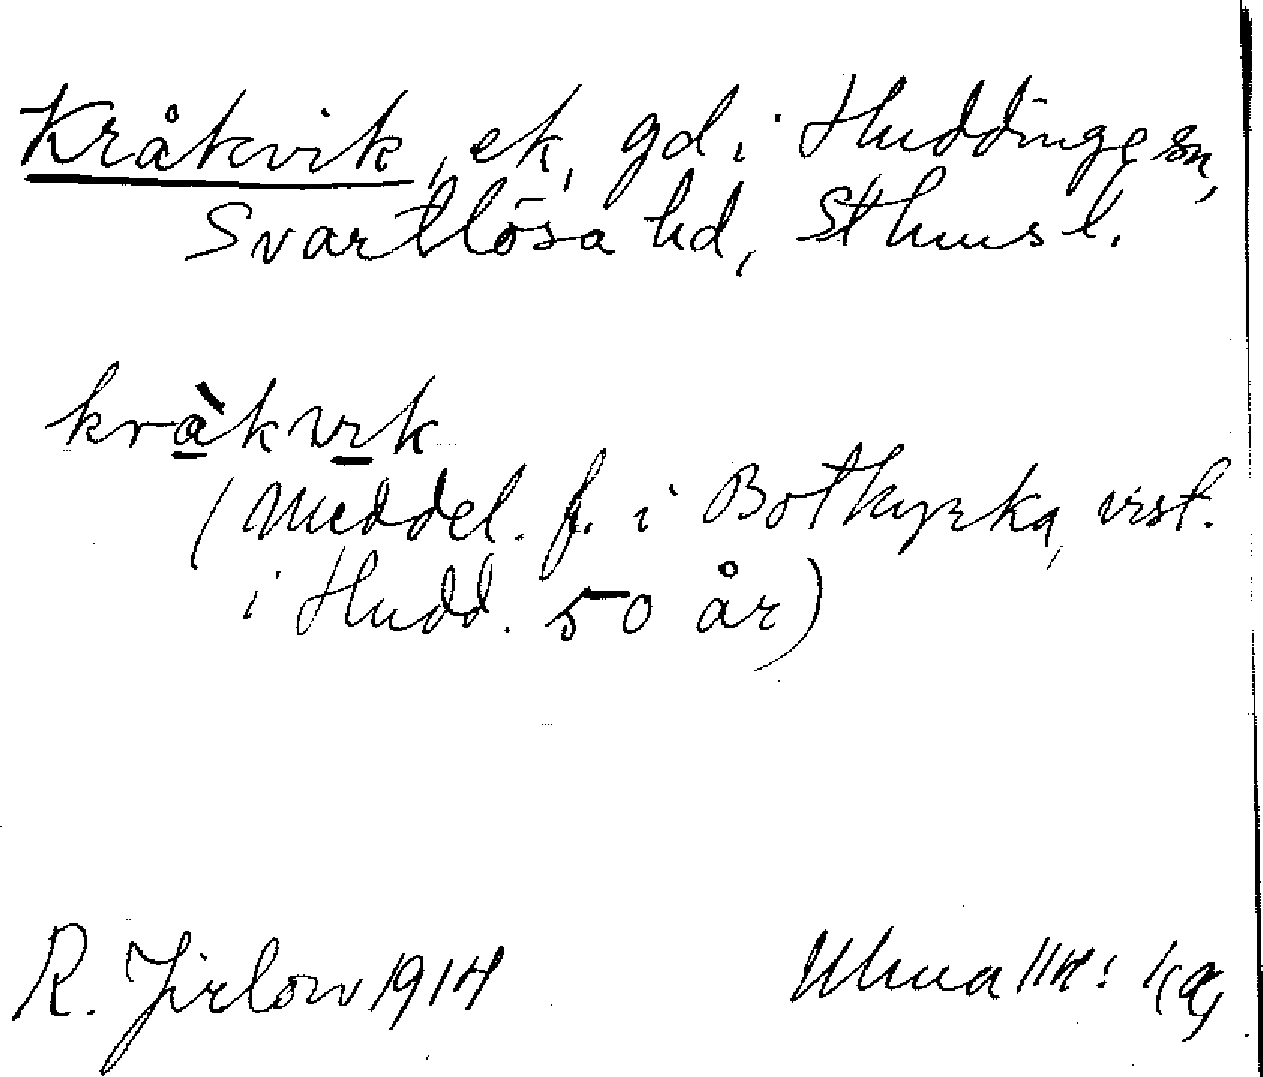 Kråkvik, ek, gd i Huddinge sn,
Svartlösa hd, Sthms l.
kràkvık
(Meddel. f. i Botkyrka, vist.
i Hudd. 50 år)
R. Jirlow 1914